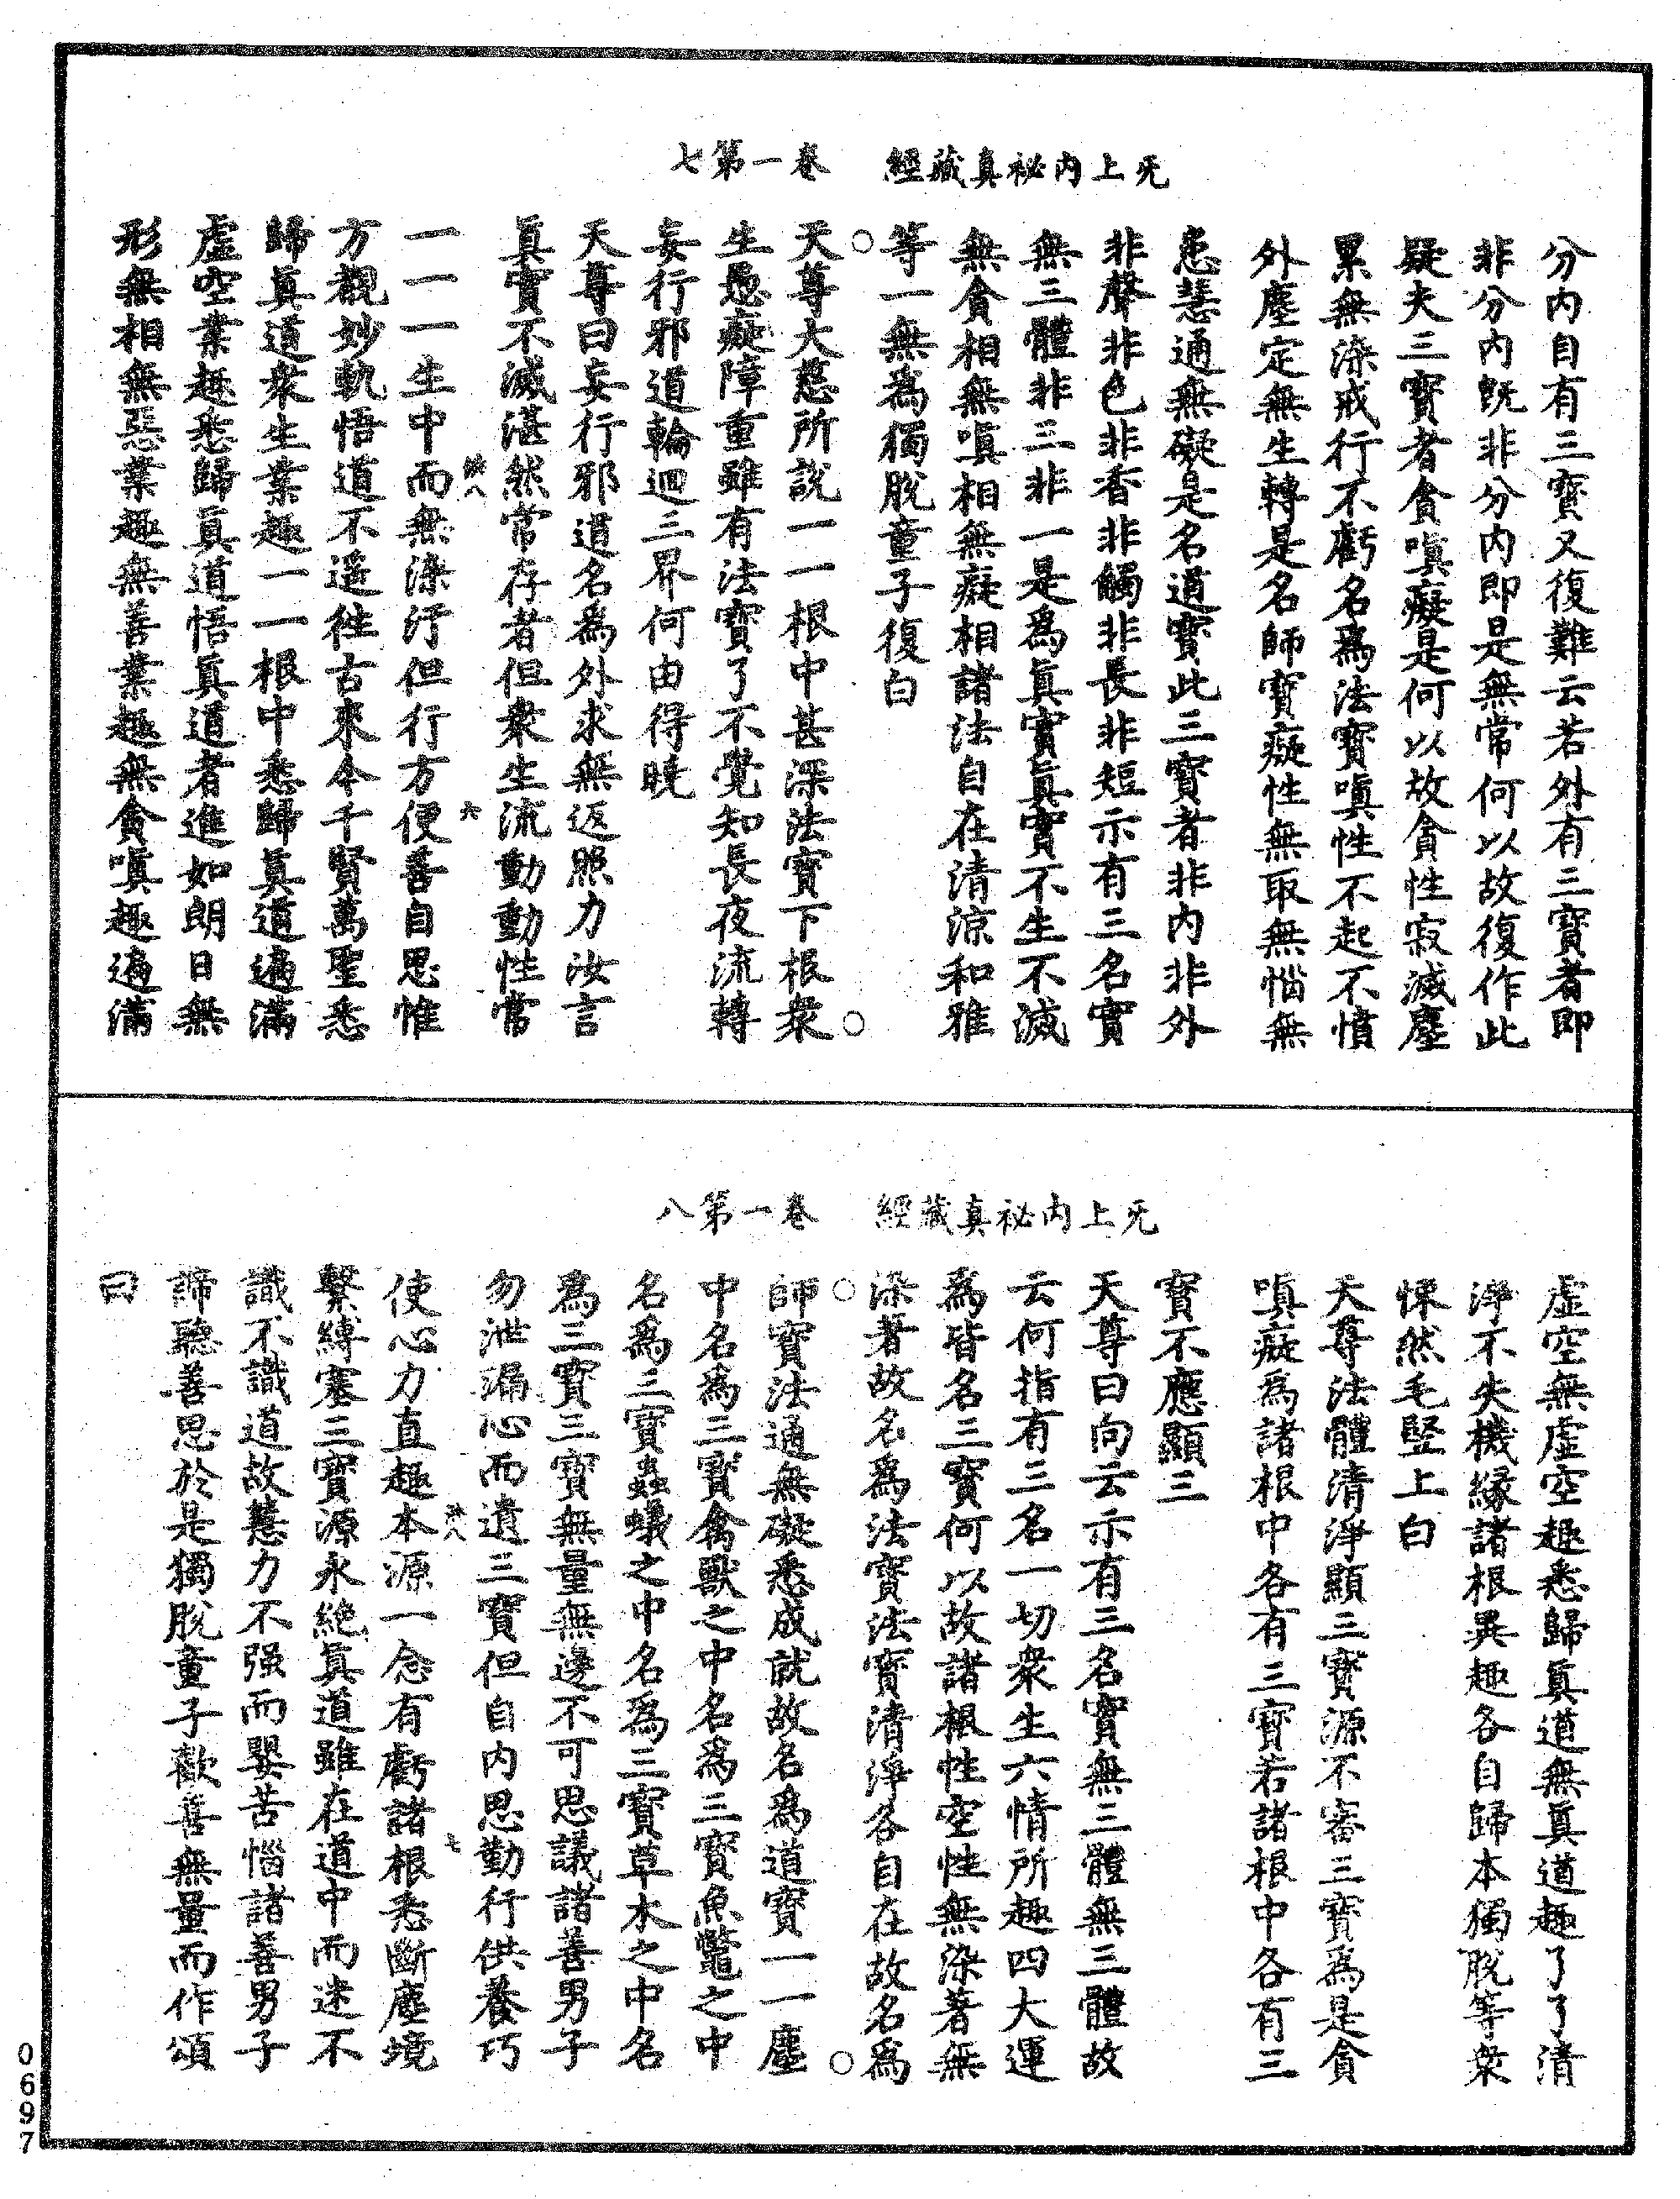 无上內祕真藏經　卷一第七
分内自有三寶又復難云若外有三寶者即
非分内既非分内即是無常何以故復作此
疑夫三寶者貪嗔癡是何以故貪性寂滅塵
累無染戒行不虧名爲法寶嗔性不起不憤
外塵定無生轉是名師寶癡性無取無惱無
恚慧通無礙是名道寶此三寶者非内非外
非聲非色非香非觸非長非短示有三名實
無三體非三非一是爲眞實眞實不生不滅
無貪相無嗔相無癡相諸法自在清涼和雅
等一無爲獨脫童子復白
天尊大慈所說一一根中甚深法寶下根衆
生愚癡障重雖有法寶了不覺知長夜流轉
妄行邪道輪迴三界何由得曉
天尊曰妄行邪道名爲外求無返照力汝言
眞實不滅湛然常存者但衆生流動動性常
一一一生中而無染汙但行方便善自思惟
六
方觀妙軌悟道不遥往古來今千賢萬聖悉
歸眞道衆生業趣一一根中悉歸眞道遍滿
虛空業趣悉歸眞道悟眞道者進如朗日無
形無相無惡業趣無善業趣無貪嗔趣遍滿
无上內祕真藏經　卷一第八
虛空無虛空趣悉歸眞道無眞道趣了了清
淨不失機緣諸根異趣各自歸本獨脫等衆
悚然毛竪上白
天尊法體清淨顯三寶源不審三寶爲是貪
嗔癡爲諸根中各有三寶若諸根中各有三
寶不應顯三
天尊曰向云示有三名實無三體無三體故
云何指有三名一切衆生六情所趣四大運
爲皆名三寶何以故諸根性空性無染著無
染著故名爲法寶法寶清淨各自在故名爲
師寶法通無礙悉成就故名爲道寶一一塵
中名爲三寶禽獸之中名爲三寶魚鼈之中
名爲三寶蟲蟻之中名爲三寶草木之中名
爲三寶三寶無量無邊不可思議諸善男子
勿泄漏心而遺三寶但自内思勤行供養巧
使心力直趣本源一念有虧諸根悉斷塵境
七
繫縛塞三寶源永絶眞道雖在道中而迷不
識不識道故慧力不强而嬰苦惱諸善男子
諦聽善思於是獨脫童子歡喜無量而作頌
曰
0697